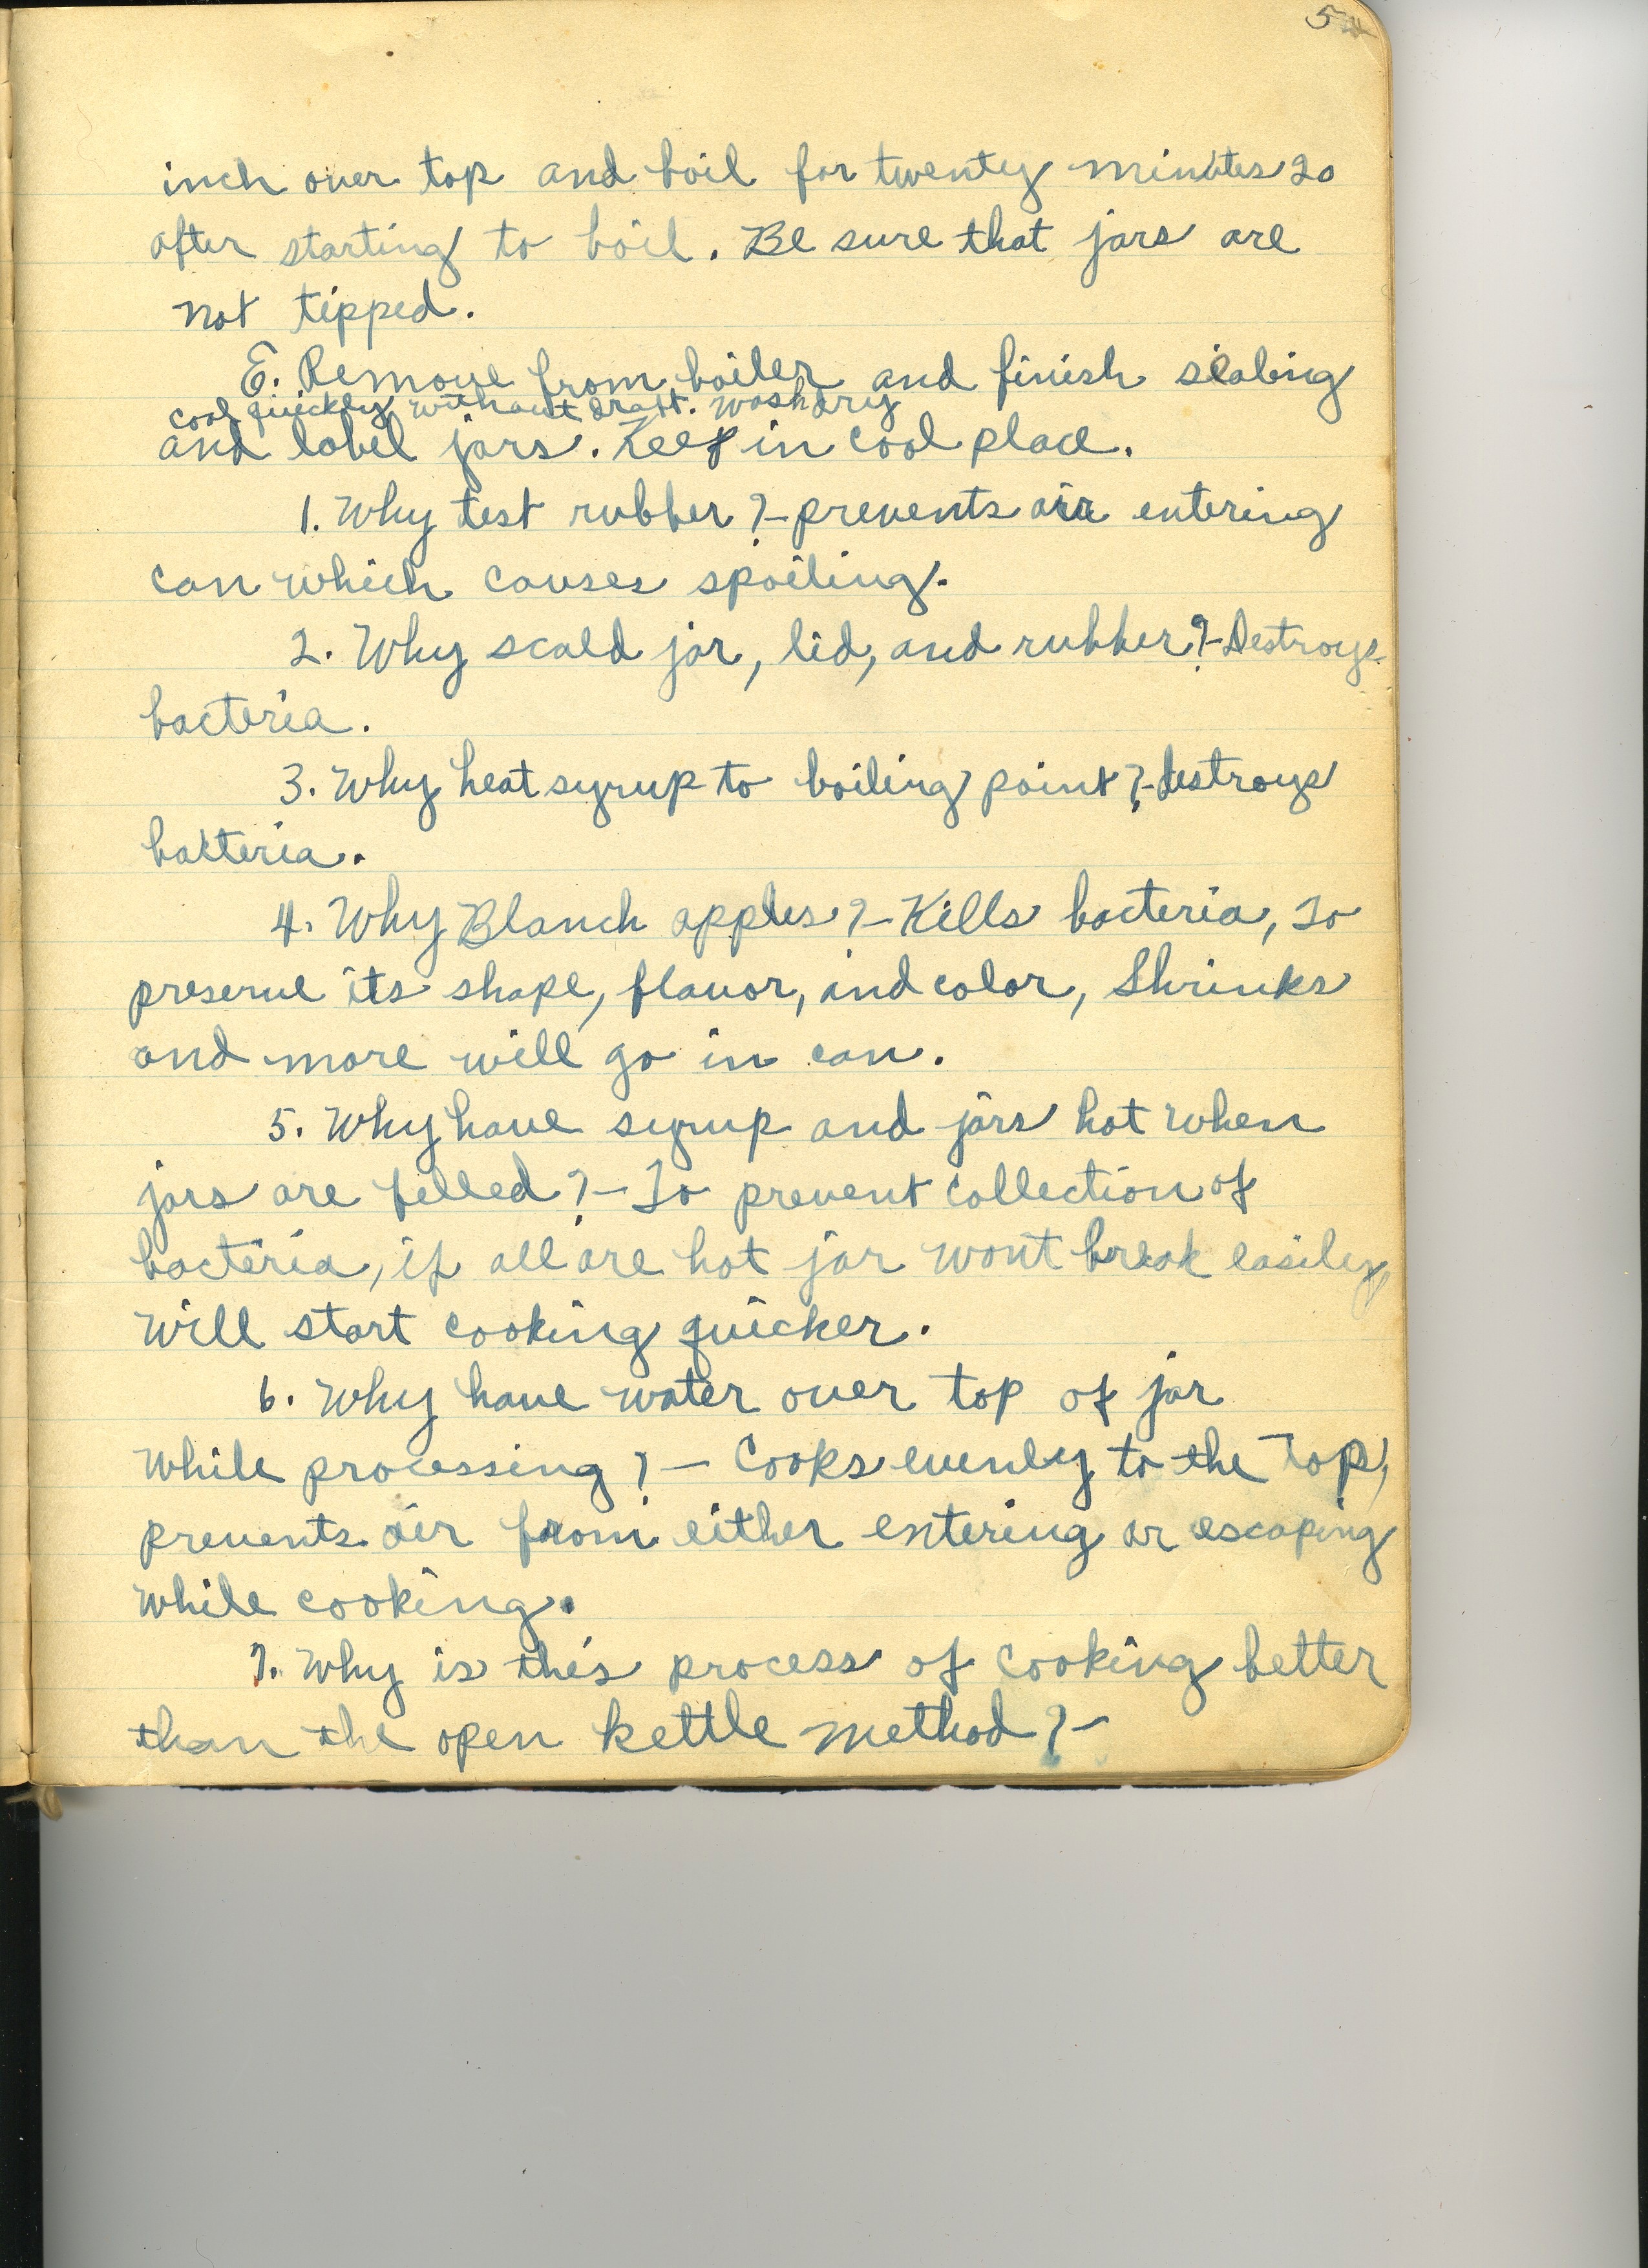 5
inch over top and boil for twenty minutes 20
after starting to boil. Be sure that jars are
not tipped.
E. Remove from boiler and finish sealing
cool quickly without draft. Wash dry
and label jars. Keep in cool place.
1. Why test rubber?-prevents air entering
can which causes spoiling.
2. Why scald jar, lid, and rubber?-Destroys
bacteria.
3. Why heat syrup to boiling point?-destroys
bacteria.
4. Why Blanch apples?-Kills bacteria, To
preserve its shape, flavor, and color, Shrinks
and more will go in can.
5. Why have syrup and jars hot when
jars are filled?-To prevent collection of
bacteria, if all are hot jar wont break easily
will start cooking quicker.
6. Why have water over top of jar
while processing?- Cooks evenly to the top,
prevents air from either entering or escaping
while cooking.
7. Why is this process of cooking better
than the open kettle method?-